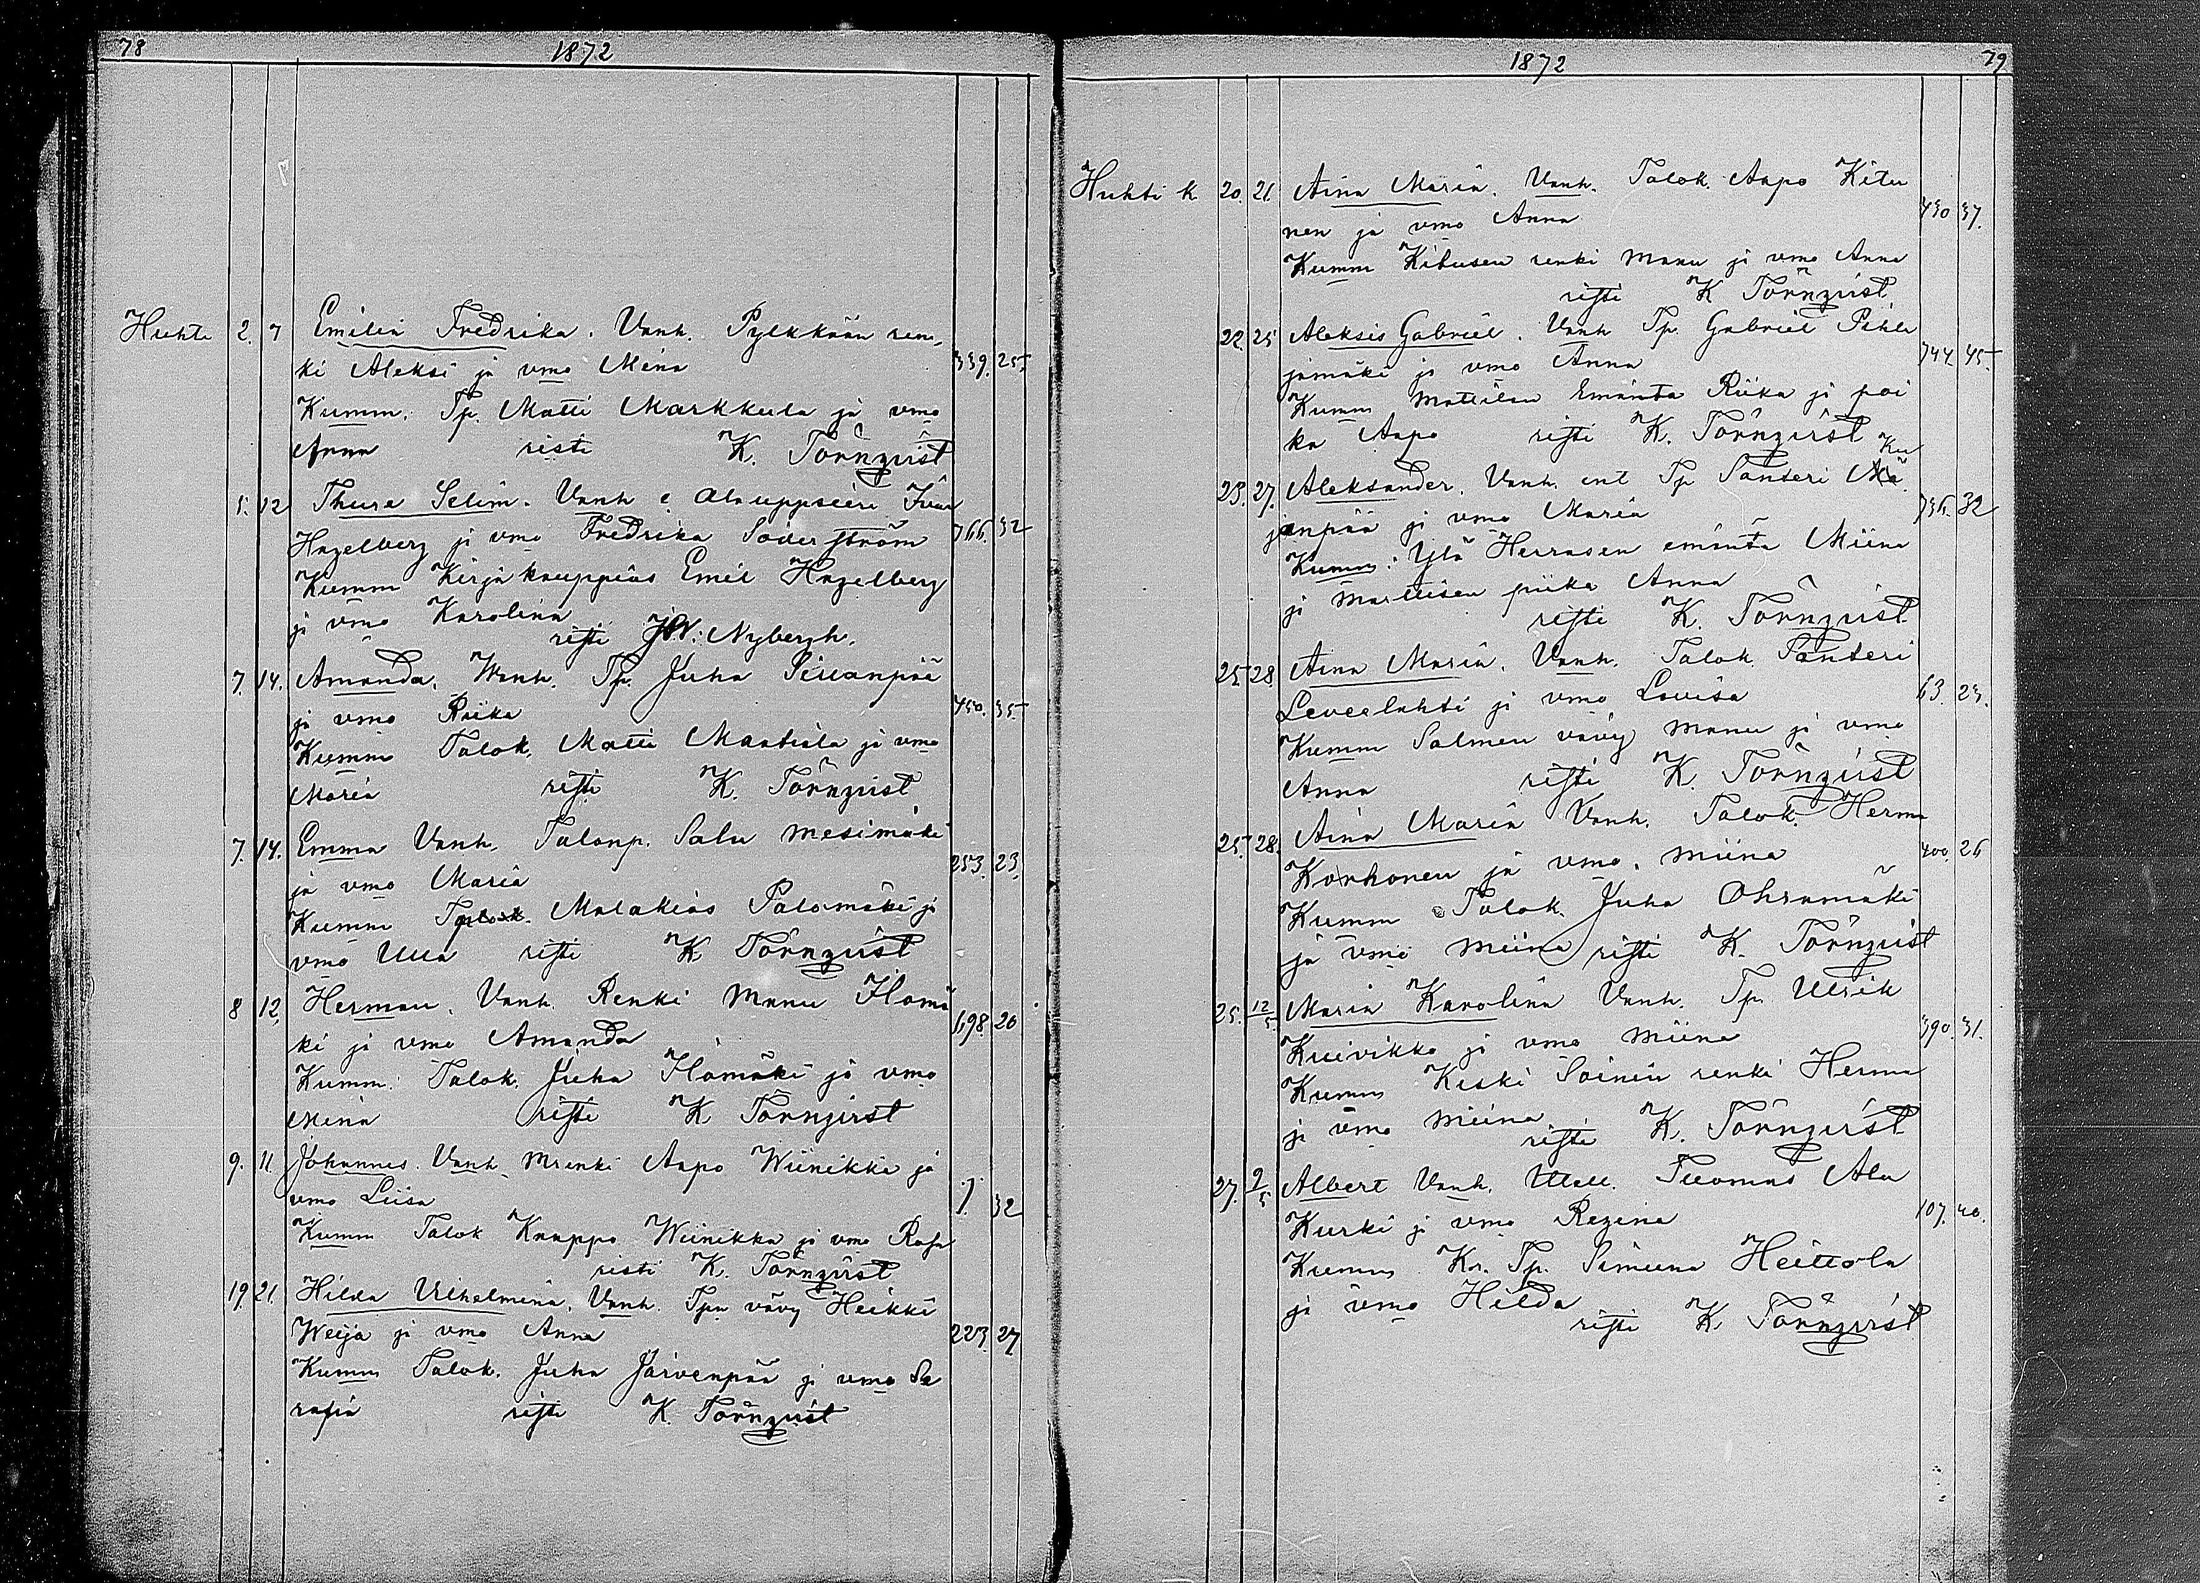 78
1872
Huhti 2. 7 Emilia Fredrika. Vanh. Pylkkään ren
ki Aleksi ja vmo Mina 339. 25
Kumm. Tp. Matti Markkula ja vmo
Anna risti K. Törnqvist
5. 12 Thure Selim. Vanh
Hagelberg ja vmo Fredrika Söderström 766. 32
Kumm Kirjakauppias Emil Hagelberg
ja vmo Karolina
risti Nybergh.
7. 14. Amanda. Vanh. Tp. Juha Sillanpää
ja vmo Riika 450. 35
Kumm Talok. Matti Mantila ja vmo
Maria risti K. Törnqvist
7. 14. Emma Vanh. Talonp. Salu Mesimäki
ja vmo Maria 253. 23.
Kumm Talok. Malakias Palomäki ja
vmo Ulla risti K Törnqvist
8 12. Herman. Vanh. Renki Manu Ilomä
ki ja vmo Amanda 698. 20
Kumm. Talok. Juha Ilomäki ja vmo
Mina risti K Törnqvist
9. 11 Johannes. Vanh. Mrenki Aapo Wiinikka ja
vmo Liisa 7. 32
Kumm Talok Kaappo Wiinikka ja vmo Rosa
risti K. Törnqvist
19. 21. Hilda Vilhelmina. Vanh. Tpn vävy Heikki
Weija ja vmo Anna 223 27
Kumm Talok. Juha Järvenpää ja vmo Se
rafia risti K. Törnqvist
1872
79
Huhti k 20. 21. Aina Maria. Vanh. Talok. Aapo Kitu
nen ja vmo Anna 430 37.
Kumm Kitusen renki Manu ja vmo Anna
risti K Törnqvist
22. 25 Aleksis Gabriel. Vanh Tp. Gabriel Pihla
jamäki ja vmo Anna 744. 45
Kumm Mattilan Emäntä Riika ja poi
ka Aapo risti K. Törnqvist
23. 27. Aleksander. Vanh. ent Tp Santeri
janpää ja vmo Maria 736. 32
Kumm. Ylä Herrasen emäntä Miina
ja Marttisen piika Anna
risti K. Törnqvist
25 28. Aina Maria. Vanh. Talok. Santeri
Leveelahti ja vmo Lovisa 63. 23.
Kumm Salmen vävy Manu ja vmo
Anna risti K. Törnqvist
25. 28. Aina Maria Vanh. Talok. Herma
Korhonen ja vmo. Miina 400. 26
Kumm Talok. Juha Ohramäki
ja vmo Miina risti K. Törnqvist
25. 12/5. Maria Karolina Vanh. Tp. Ulrik
Kuivikko ja vmo Miina 390. 31.
Kumm Keski Soinin renki Herma
ja vmo Miina.
risti K. Törnqvist
27. 9/5 Albert Vanh. Tuomas Ala
Kurki ja vmo Regina 107. 40.
Kumm Kr. Tp. Simuna Heittola
ja vmo Hilda
risti K. Törnqvist